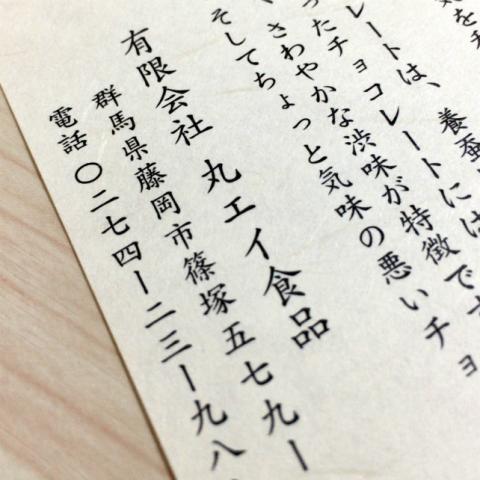 気を
レートは、養蚕
ったチョコレートには
、さわやかな渋味が特徴です
そしてちょっと気味の悪いチョ
有限会社 丸エイ食品
群馬県藤岡市篠塚五七九ー
電話 〇二七四ー二三ー九八